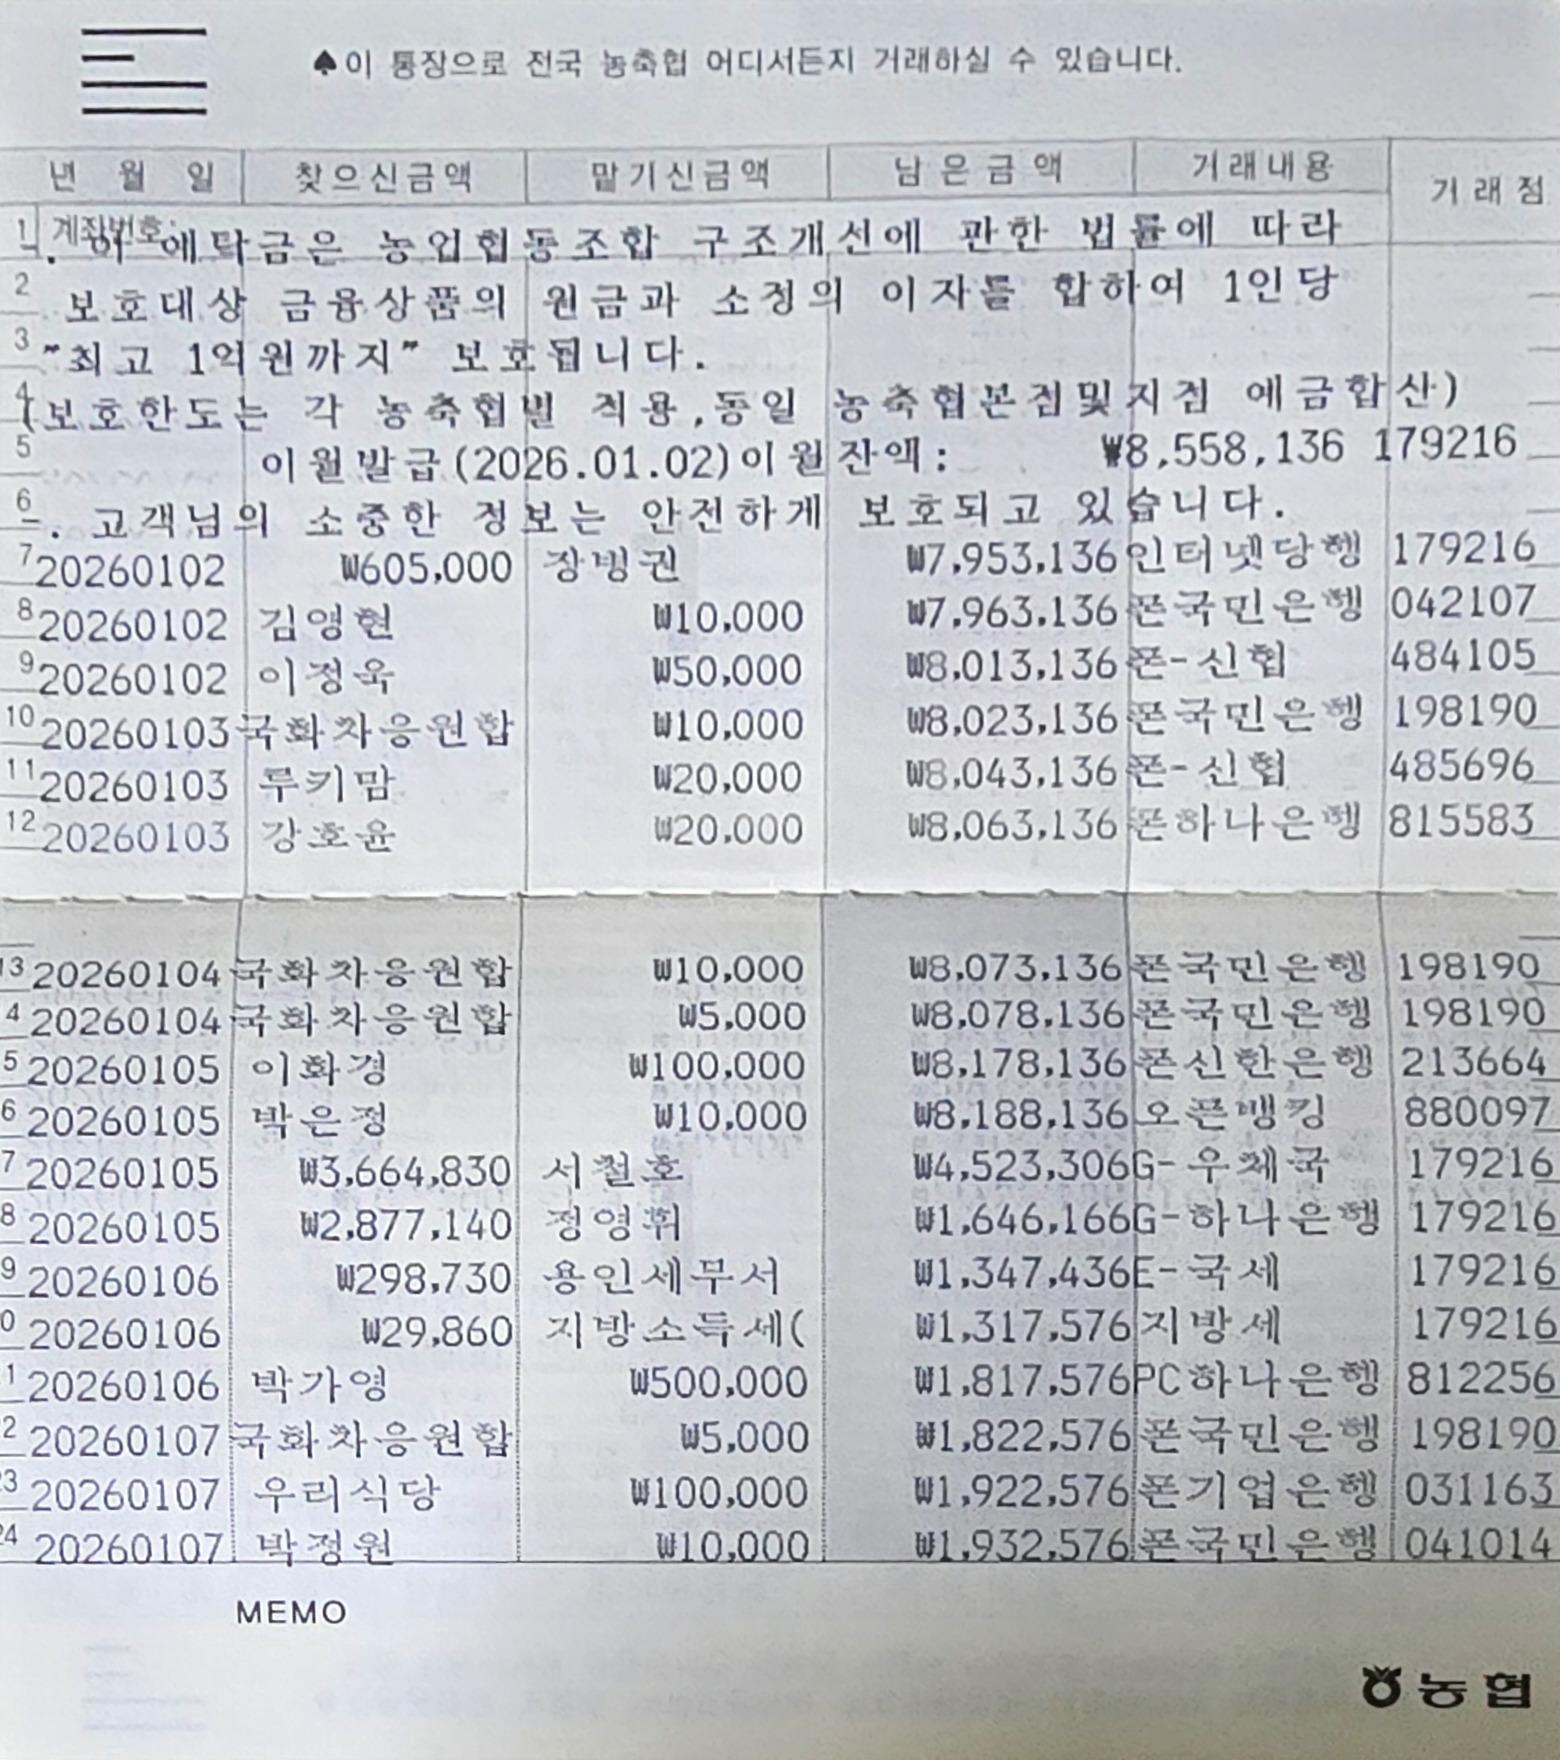 ♠이 통장으로 전국 농축협 어디서든지 거래하실 수 있습니다.
년 월 일 찾으신금액 맡기신금액 남은금액 거래내용 거래점
1 계좌번호:
. 이 예탁금은 농업협동조합 구조개선에 관한 법률에 따라
2 보호대상 금융상품의 원금과 소정의 이자를 합하여 1인당
3 "최고 1억원까지" 보호됩니다.
4 (보호한도는 각 농축협별 적용,동일 농축협본점및지점 예금합산)
5 이월발급(2026.01.02)이월잔액: ₩8,558,136 179216
6 . 고객님의 소중한 정보는 안전하게 보호되고 있습니다.
7 20260102 ₩605,000 장병권 ₩7,953,136 인터넷당행 179216
8 20260102 김영현 ₩10,000 ₩7,963,136 폰국민은행 042107
9 20260102 이정옥 ₩50,000 ₩8,013,136 폰-신협 484105
10 20260103 국화차응원합 ₩10,000 ₩8,023,136 폰국민은행 198190
11 20260103 루키맘 ₩20,000 ₩8,043,136 폰-신협 485696
12 20260103 강호윤 ₩20,000 ₩8,063,136 폰하나은행 815583
13 20260104 국화차응원합 ₩10,000 ₩8,073,136 폰국민은행 198190
4 20260104 국화차응원합 ₩5,000 ₩8,078,136 폰국민은행 198190
5 20260105 이화경 ₩100,000 ₩8,178,136 폰신한은행 213664
6 20260105 박은정 ₩10,000 ₩8,188,136 오픈뱅킹 880097
7 20260105 ₩3,664,830 서철호 ₩4,523,306 G-우체국 179216
8 20260105 ₩2,877,140 정영휘 ₩1,646,166 G-하나은행 179216
9 20260106 ₩298,730 용인세무서 ₩1,347,436 E-국세 179216
0 20260106 ₩29,860 지방소득세( ₩1,317,576 지방세 179216
1 20260106 박가영 ₩500,000 ₩1,817,576 PC하나은행 812256
2 20260107 국화차응원합 ₩5,000 ₩1,822,576 폰국민은행 198190
23 20260107 우리식당 ₩100,000 ₩1,922,576 폰기업은행 031163
24 20260107 박정원 ₩10,000 ₩1,932,576 폰국민은행 041014
MEMO
농협